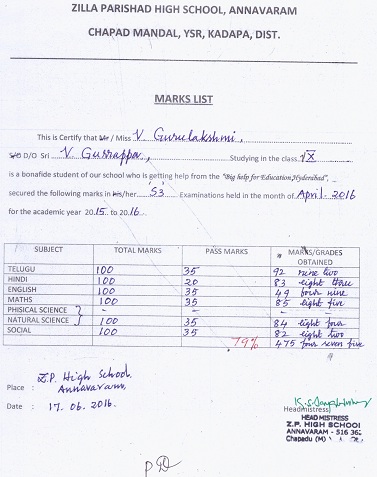 ZILLA PARISHAD HIGH SCHOOL, ANNAVARAM
CHAPAD MANDAL, YSR, KADAPA, DIST.
MARKS LIST
This is Certify that Mr / Miss V Gurulakshmi,
S/O D/O Sri V Gurrappa, Studying in the class X
is a bonafide student of our school who is getting help from the "Big help for Education, Hyderabad",
secured the following marks in his/her 'S3' Examinations held in the month of April 2016
for the academic year 2015 to 2016.
SUBJECT TOTAL MARKS PASS MARKS MARKS/GRADES OBTAINED
TELUGU 100 35 92 nine two
HINDI 100 20 83 eight three
ENGLISH 100 35 49 four nine
MATHS 100 35 85 eight five
PHISICAL SCIENCE - - -
NATURAL SCIENCE 100 35 84 eight four
SOCIAL 100 35 82 eight two
79% 475 four seven five
Place : Z.P. High School, Annavaram,
Date : 17.06.2016.
Headmistress
HEAD MISTRESS
Z.P. HIGH SCHOOL
ANNAVARAM - 516 362
Chapadu (M)